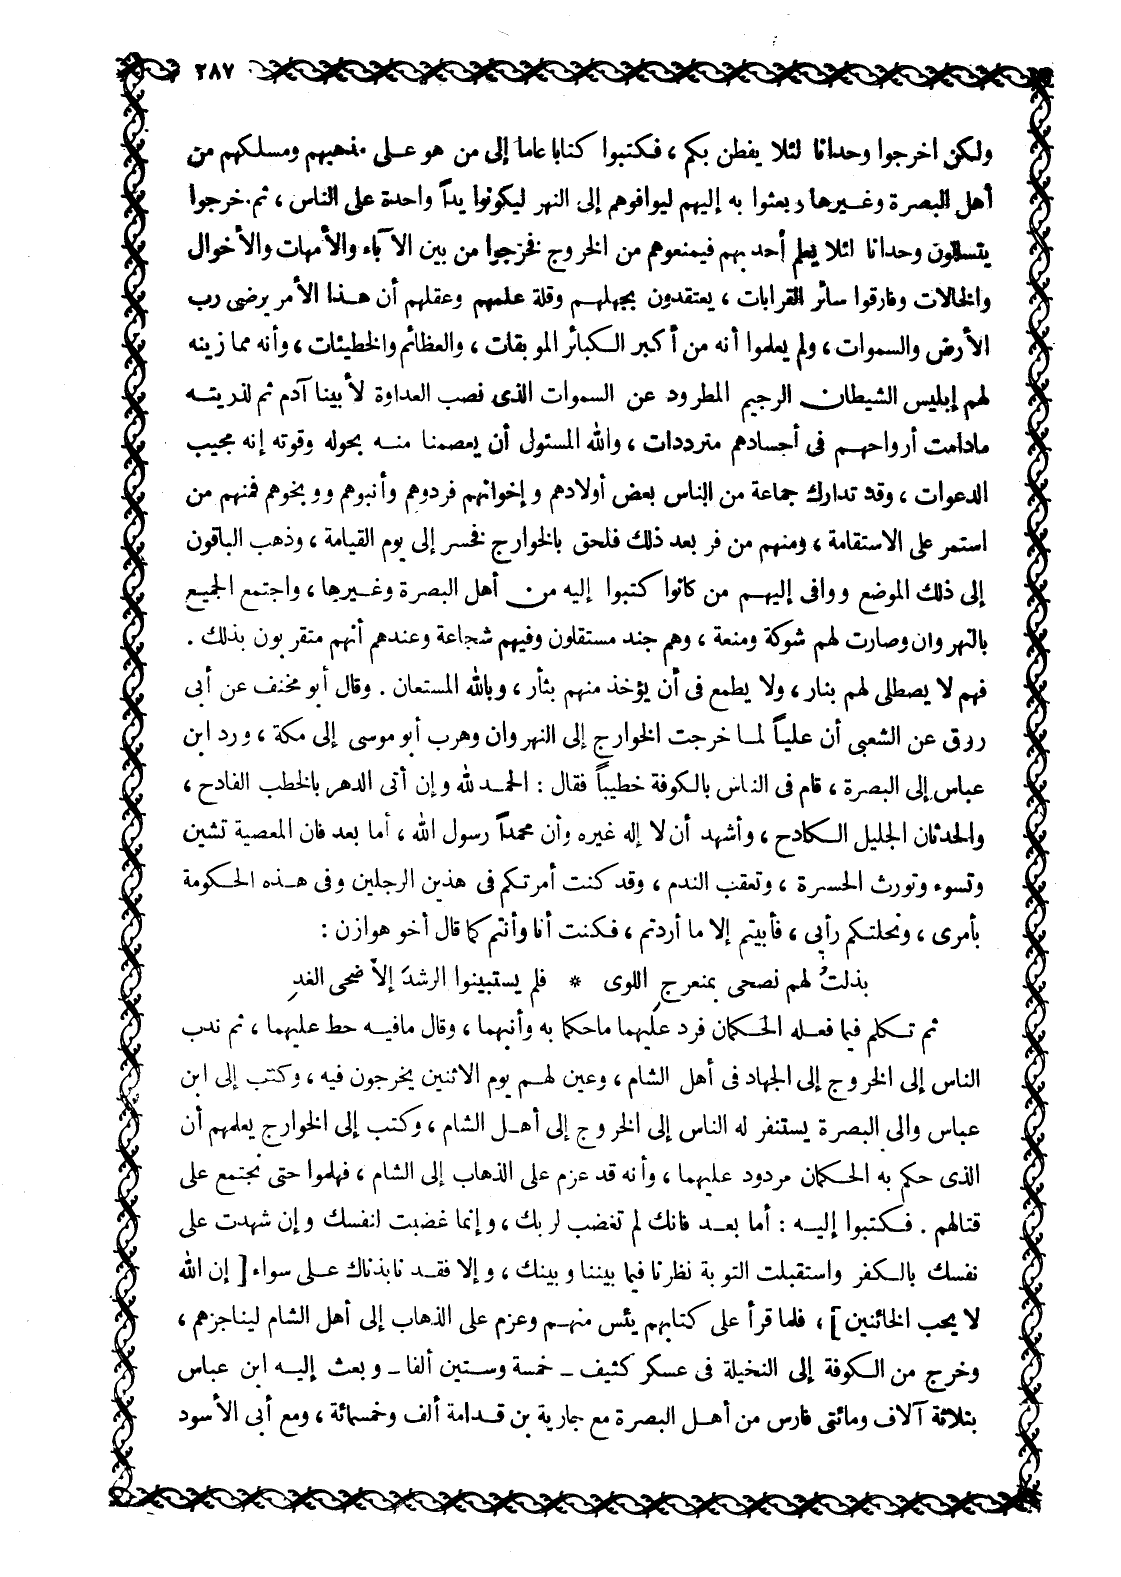 ٢٨٧
ولكن اخرجوا وحدانا لئلا يفطن بكم ، فكتبوا كتابا عاما إلى من هو على مذهبهم ومسلكهم من
أهل البصرة وغيرها وبعثوا به إليهم ليوافوهم إلى النهر ليكونوا يداً واحدة على الناس ، ثم خرجوا
يتسللون وحدانا لئلا يعلم أحد بهم فيمنعوهم من الخروج فخرجوا من بين الآباء والأمهات والأخوال
والخالات وفارقوا سائر القرابات ، يعتقدون بجهلهم وقلة علمهم وعقلهم أن هذا الأمر يرضى رب
الأرض والسموات ، ولم يعلموا أنه من أكبر الكبائر الموبقات ، والعظائم والخطيئات ، وأنه مما زينه
لهم إبليس الشيطان الرجيم المطرود عن السموات الذى نصب العداوة لأبينا آدم ثم لذريته
مادامت أرواحهم فى أجسادهم مترددات ، والله المسئول أن يعصمنا منه بحوله وقوته إنه مجيب
الدعوات ، وقد تدارك جماعة من الناس بعض أولادهم وإخوانهم فردوهم وأنبوهم ووبخوهم فمنهم من
استمر على الاستقامة ، ومنهم من فر بعد ذلك فلحق بالخوارج فخسر إلى يوم القيامة ، وذهب الباقون
إلى ذلك الموضع ووافى إليهم من كانوا كتبوا إليه من أهل البصرة وغيرها ، واجتمع الجميع
بالنهروان وصارت لهم شوكة ومنعة ، وهم جند مستقلون وفيهم شجاعة وعندهم أنهم متقربون بذلك .
فهم لا يصطلى لهم بنار ، ولا يطمع فى أن يؤخذ منهم بثأر ، وبالله المستعان . وقال أبو مخنف عن أبى
روق عن الشعبى أن علياً لما خرجت الخوارج إلى النهروان وهرب أبو موسى إلى مكة ، ورد ابن
عباس إلى البصرة ، قام فى الناس بالكوفة خطيباً فقال : الحمد لله وإن أتى الدهر بالخطب الفادح ،
والحدثان الجليل الكادح ، وأشهد أن لا إله غيره وأن محمداً رسول الله ، أما بعد فان المعصية تشين
وتسوء وتورث الحسرة ، وتعقب الندم ، وقد كنت أمرتكم فى هذين الرجلين وفى هذه الحكومة
بأمرى ، ونحلتكم رأيى ، فأبيتم إلا ما أردتم ، فكنت أنا وأنتم كما قال أخو هوازن :
بذلتُ لهم نصحى بمنعرجِ اللوى * فلم يستبينوا الرشدَ إلاّ ضحى الغدِ
ثم تكلم فيما فعله الحكمان فرد عليهما ماحكما به وأنبهما ، وقال مافيه حط عليهما ، ثم ندب
الناس إلى الخروج إلى الجهاد فى أهل الشام ، وعين لهم يوم الاثنين يخرجون فيه ، وكتب إلى ابن
عباس والى البصرة يستنفر له الناس إلى الخروج إلى أهل الشام ، وكتب إلى الخوارج يعلمهم أن
الذى حكم به الحكمان مردود عليهما ، وأنه قد عزم على الذهاب إلى الشام ، فهلموا حتى نجتمع على
قتالهم . فكتبوا إليه : أما بعد فانك لم تغضب لربك ، وإنما غضبت لنفسك وإن شهدت على
نفسك بالكفر واستقبلت التوبة نظرنا فيما بيننا وبينك ، وإلا فقد نابذناك على سواء [ إن الله
لا يحب الخائنين ] ، فلما قرأ على كتابهم يئس منهم وعزم على الذهاب إلى أهل الشام ليناجزهم ،
وخرج من الكوفة إلى النخيلة فى عسكر كثيف - خمسة وستين ألفا - وبعث إليه ابن عباس
بثلاثة آلاف ومائتى فارس من أهل البصرة مع جارية بن قدامة ألف وخمسمائة ، ومع أبى الأسود